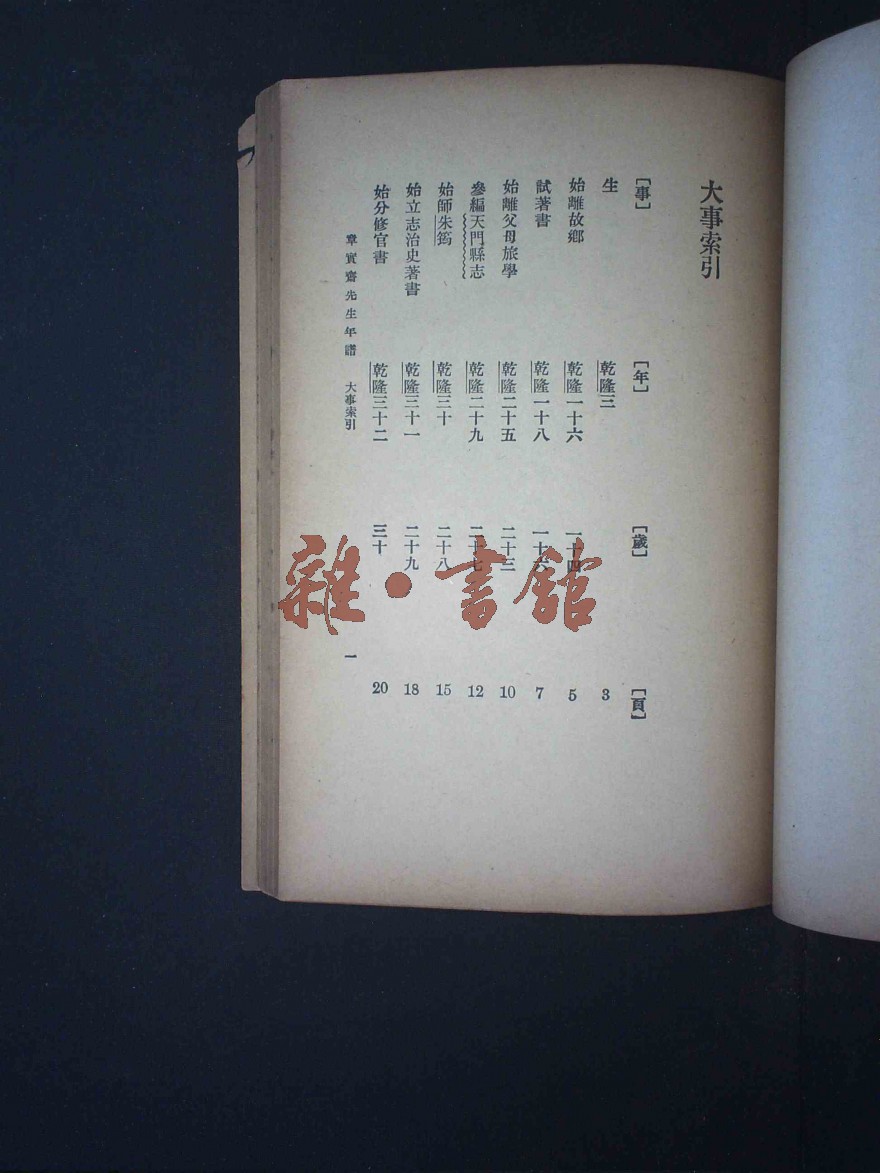 大事索引
[事] [年] [歲] [頁]
生 乾隆三 3
始離故鄉 乾隆一十六 一十四 5
試著書 乾隆一十八 一十六 7
始離父母旅學 乾隆二十五 二十三 10
參編天門縣志 乾隆二十九 二十七 12
始師朱筠 乾隆三十 二十八 15
始立志治史著書 乾隆三十一 二十九 18
始分修官書 乾隆三十二 三十 20
章實齋先生年譜 大事索引 一
雜·書館